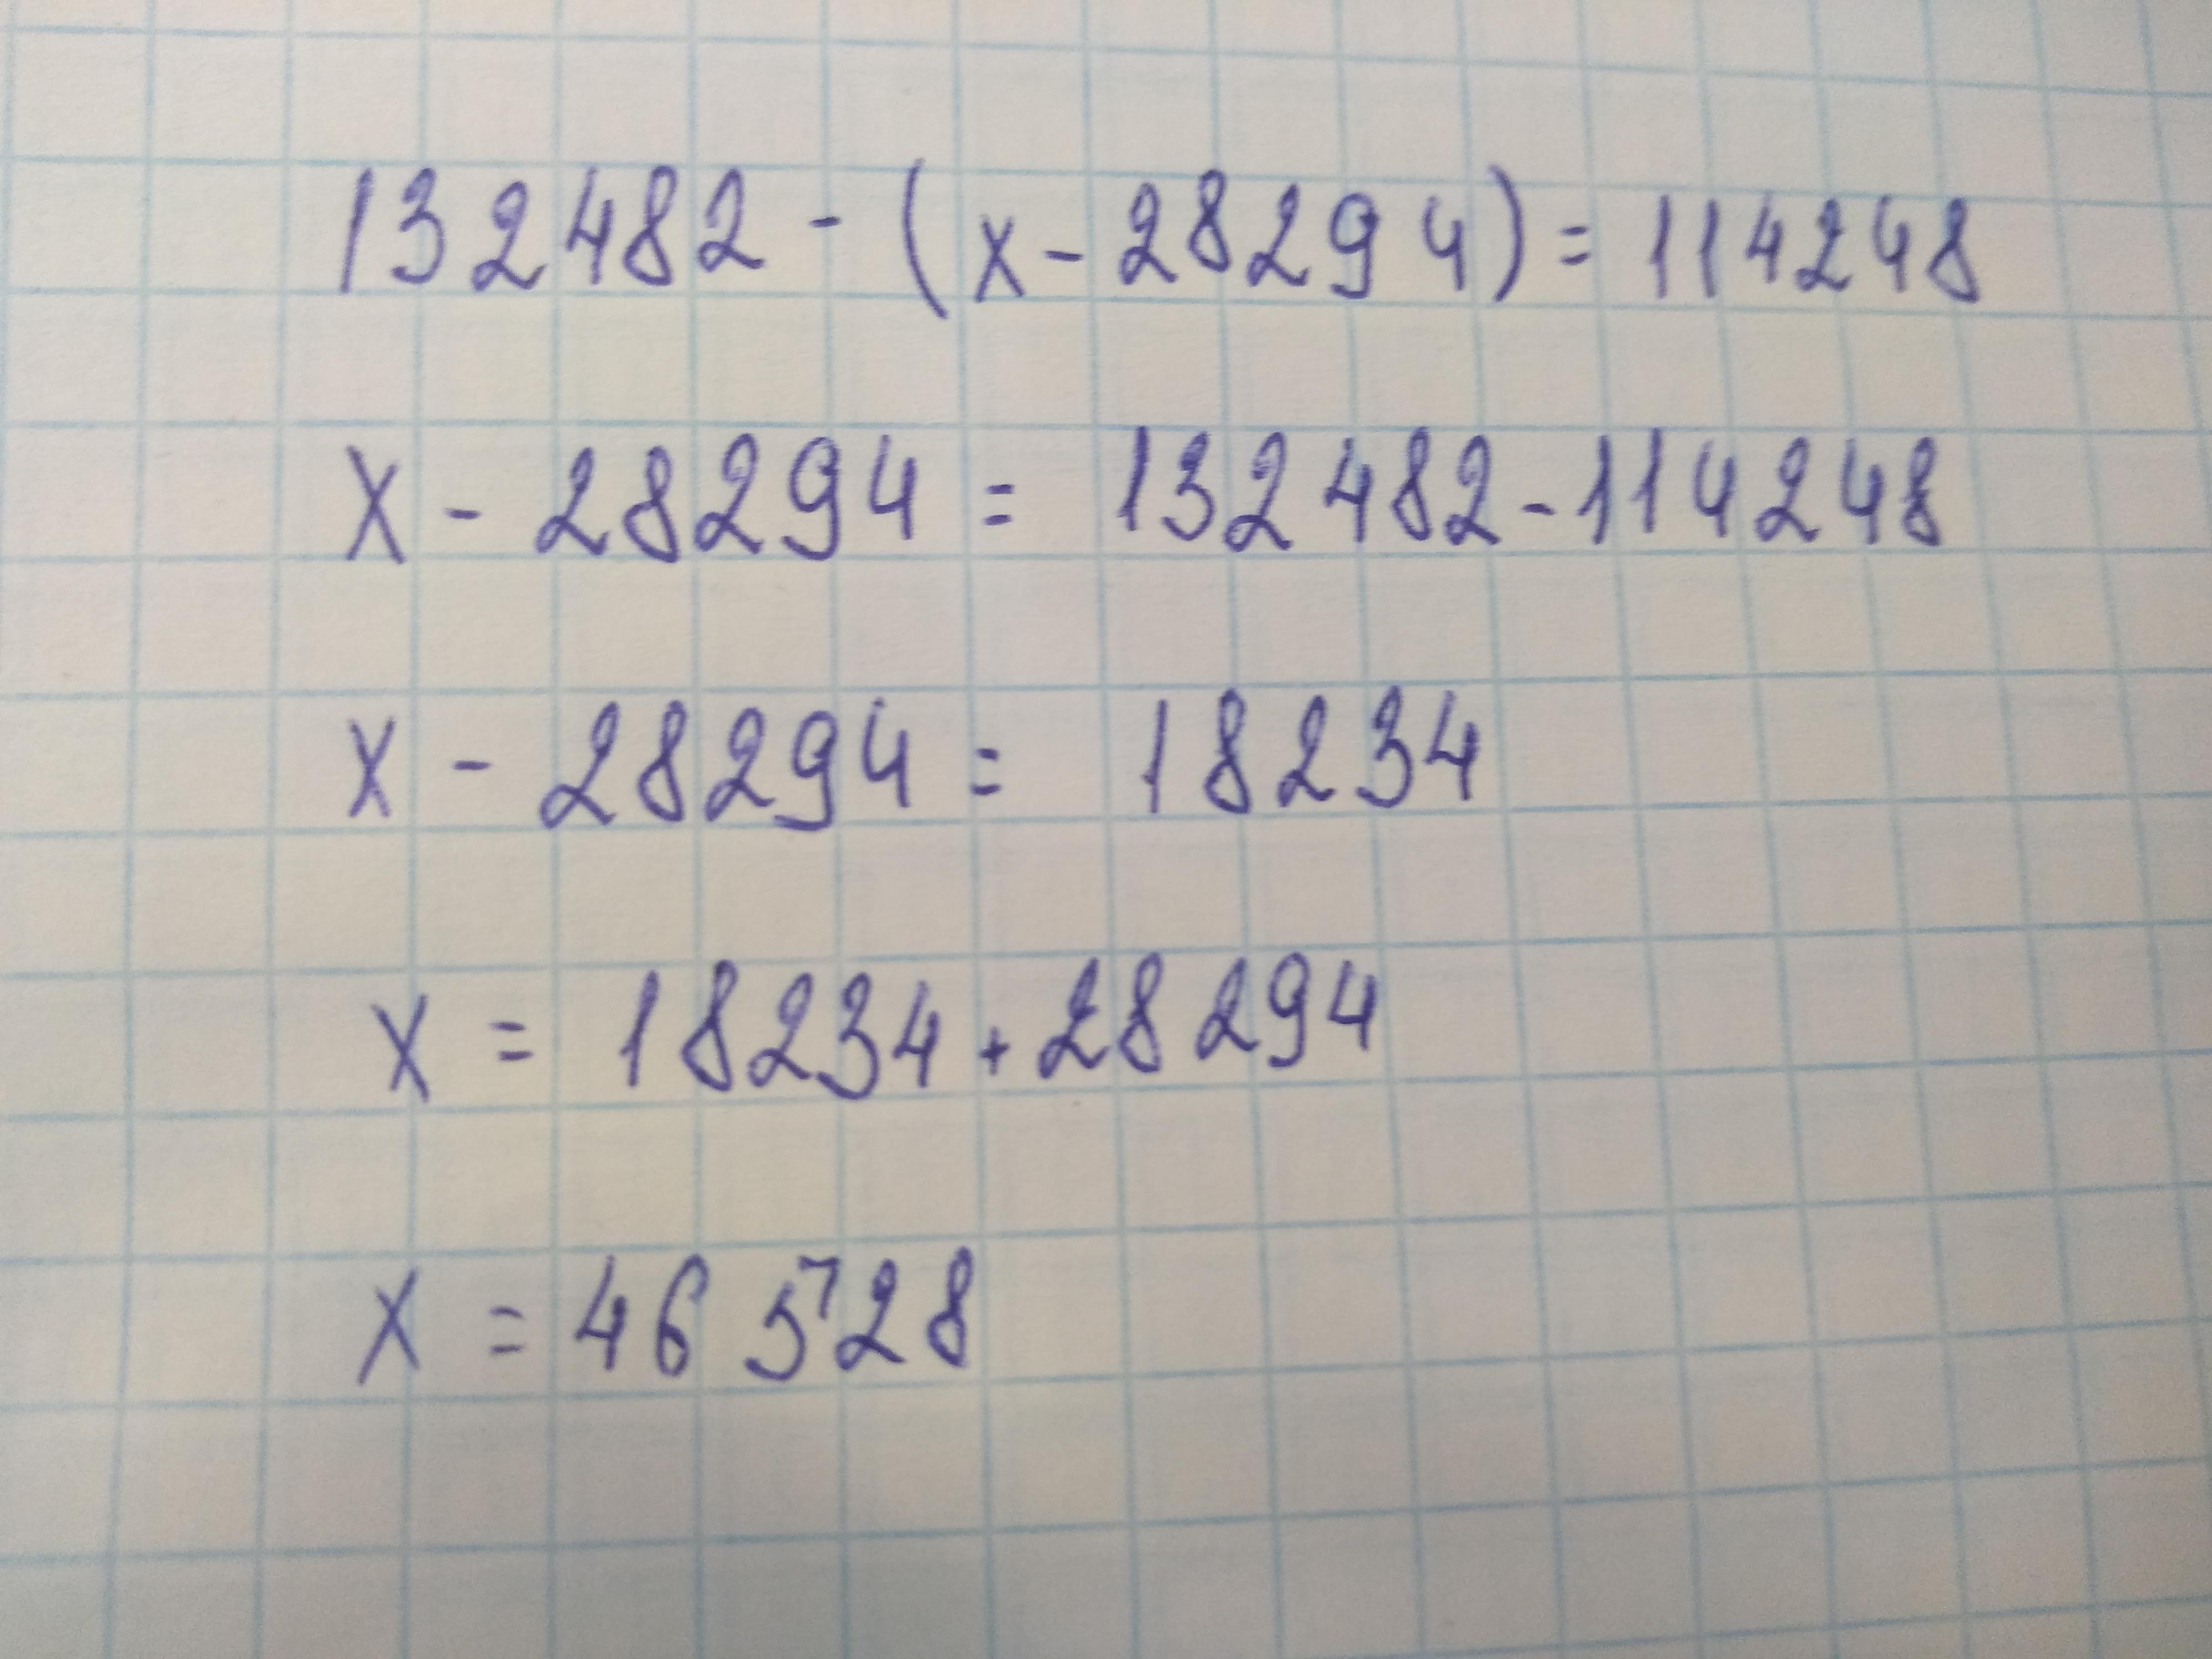 132482 - (x - 28294) = 114248
x - 28294 = 132482 - 114248
x - 28294 = 18234
x = 18234 + 28294
x = 46528